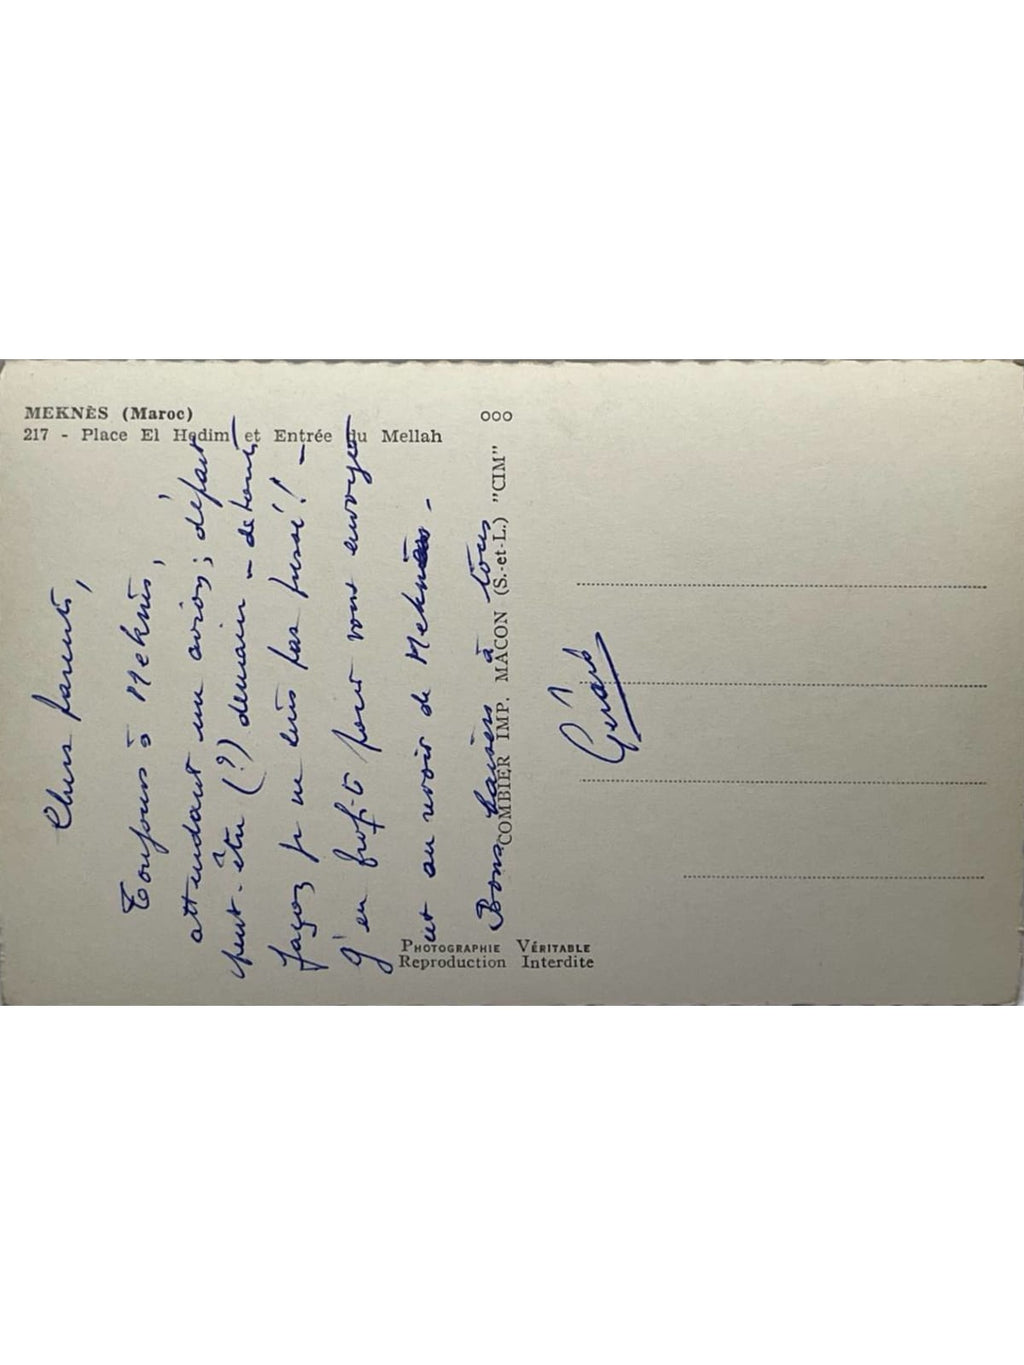 MEKNÈS (Maroc)
217 - Place El Hedim et Entrée du Mellah
ooo
COMBIER IMP. MÂCON (S.-et-L.) "CIM"
PHOTOGRAPHIE VÉRITABLE
Reproduction Interdite
Chers parents,
Toujours à Meknès,
attendant un avion; départ
peut-être (?) demain - de toute
façon je ne suis pas pressé! -
J'en profite pour vous envoyer
cet au revoir de Meknès -
Bons baisers à tous
Gérard